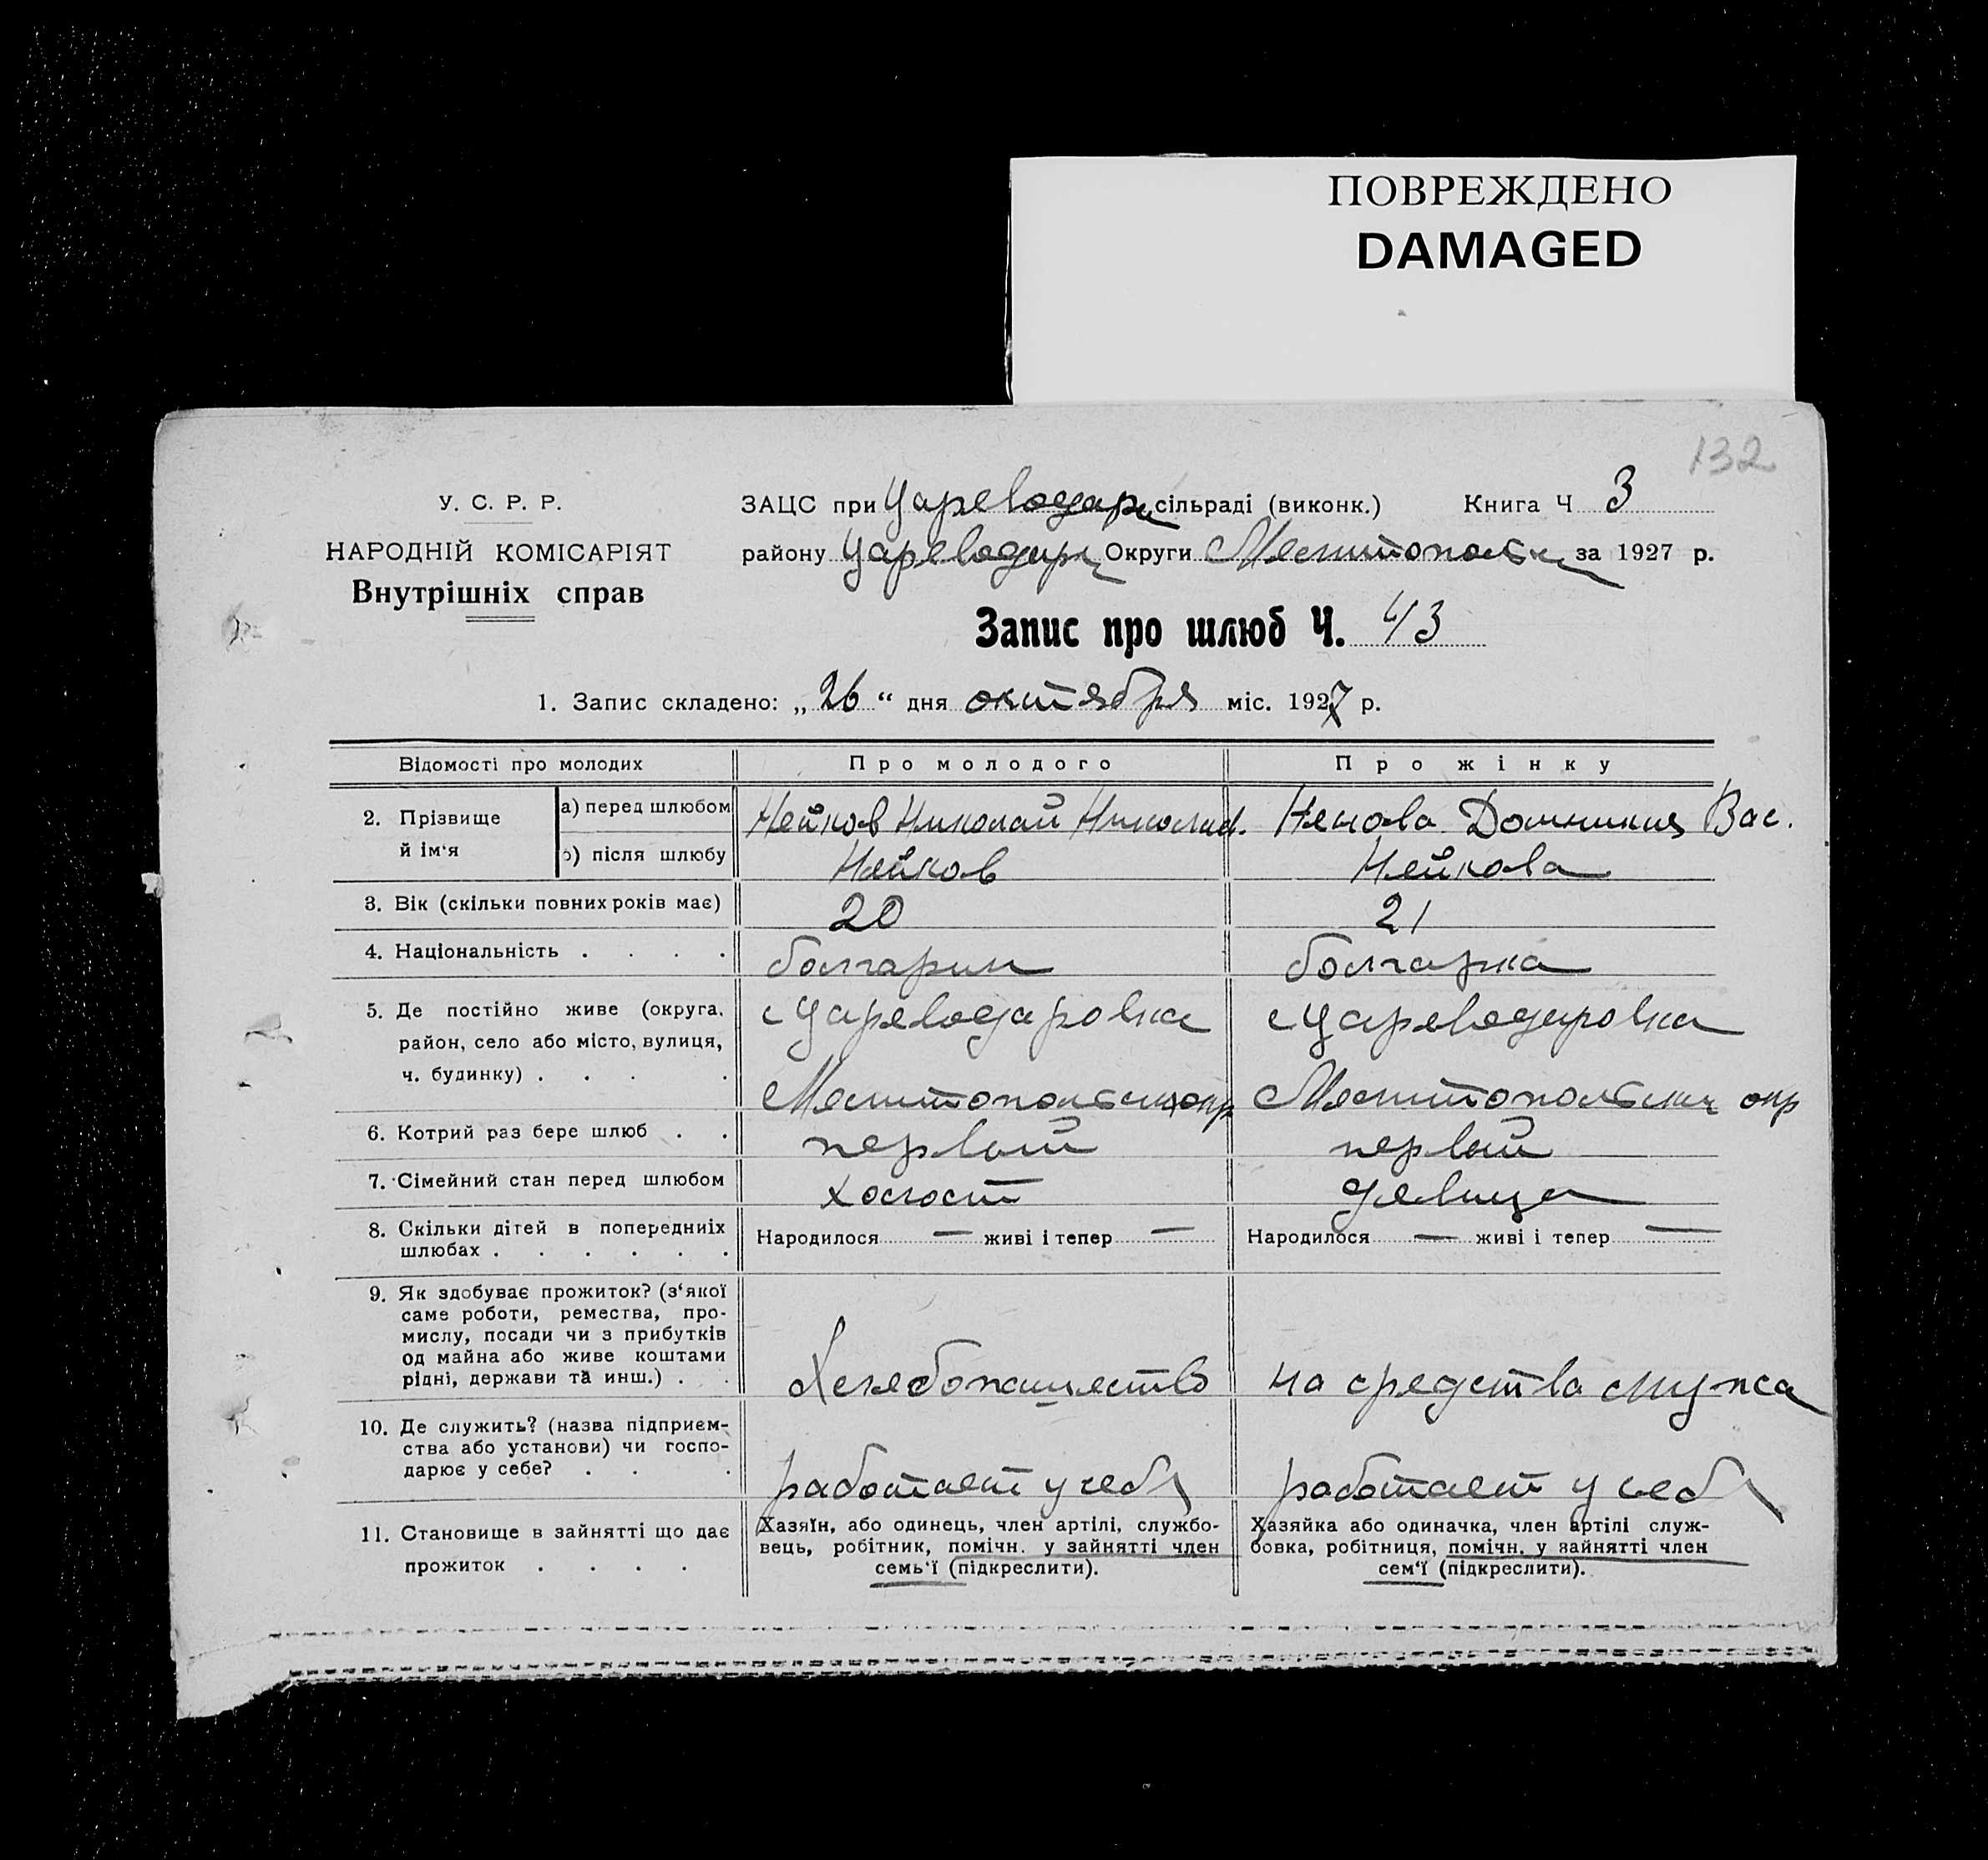 ПОВРЕЖДЕНО
DAMAGED
132
У. С. Р. Р.
НАРОДНІЙ КОМІСАРІЯТ
Внутрішніх справ
ЗАЦС при Цареводар сільраді (виконк.) Книга Ч 3
району Цареводар Округи Мелитопольск за 1927 р.
Запис про шлюб Ч. 43
1. Запис складено: „26“ дня октября міс. 1927 р.
Відомості про молодих Про молодого Про жінку
2. Прізвище й ім‘я
а) перед шлюбом Нейков Николай Николаев. Ненова Домникия Вас.
б) після шлюбу Нейков Нейкова
3. Вік (скільки повних років має) 20 21
4. Національність . . . . болгарин болгарка
5. Де постійно живе (округа, с Цареводаровка с Цареводаровка
район, село або місто, вулиця,
ч. будинку) . . . . Мелитопольск окр Мелитопольск окр
6. Котрий раз бере шлюб . . первый первый
7. Сімейний стан перед шлюбом холост девица
8. Скільки дітей в попередниіх шлюбах . . . . . . Народилося — живі і тепер — Народилося — живі і тепер —
9. Як здобуває прожиток? (з‘якої
саме роботи, ремества, про-
мислу, посади чи з прибутків
од майна або живе коштами
рідні, держави та инш.) . . Хлебопашество на средства мужа
10. Де служить? (назва підприєм-
ства або установи) чи госпо-
дарює у себе? . . . работает у себя работает у себя
11. Становище в зайнятті що дає
прожиток . . . .
Хазяїн, або одинець, член артілі, службо-
вець, робітник, помічн. у зайнятті член
семь‘ї (підкреслити).
Хазяйка або одиначка, член артілі служ-
бовка, робітниця, помічн. у зайнятті член
сем‘ї (підкреслити).